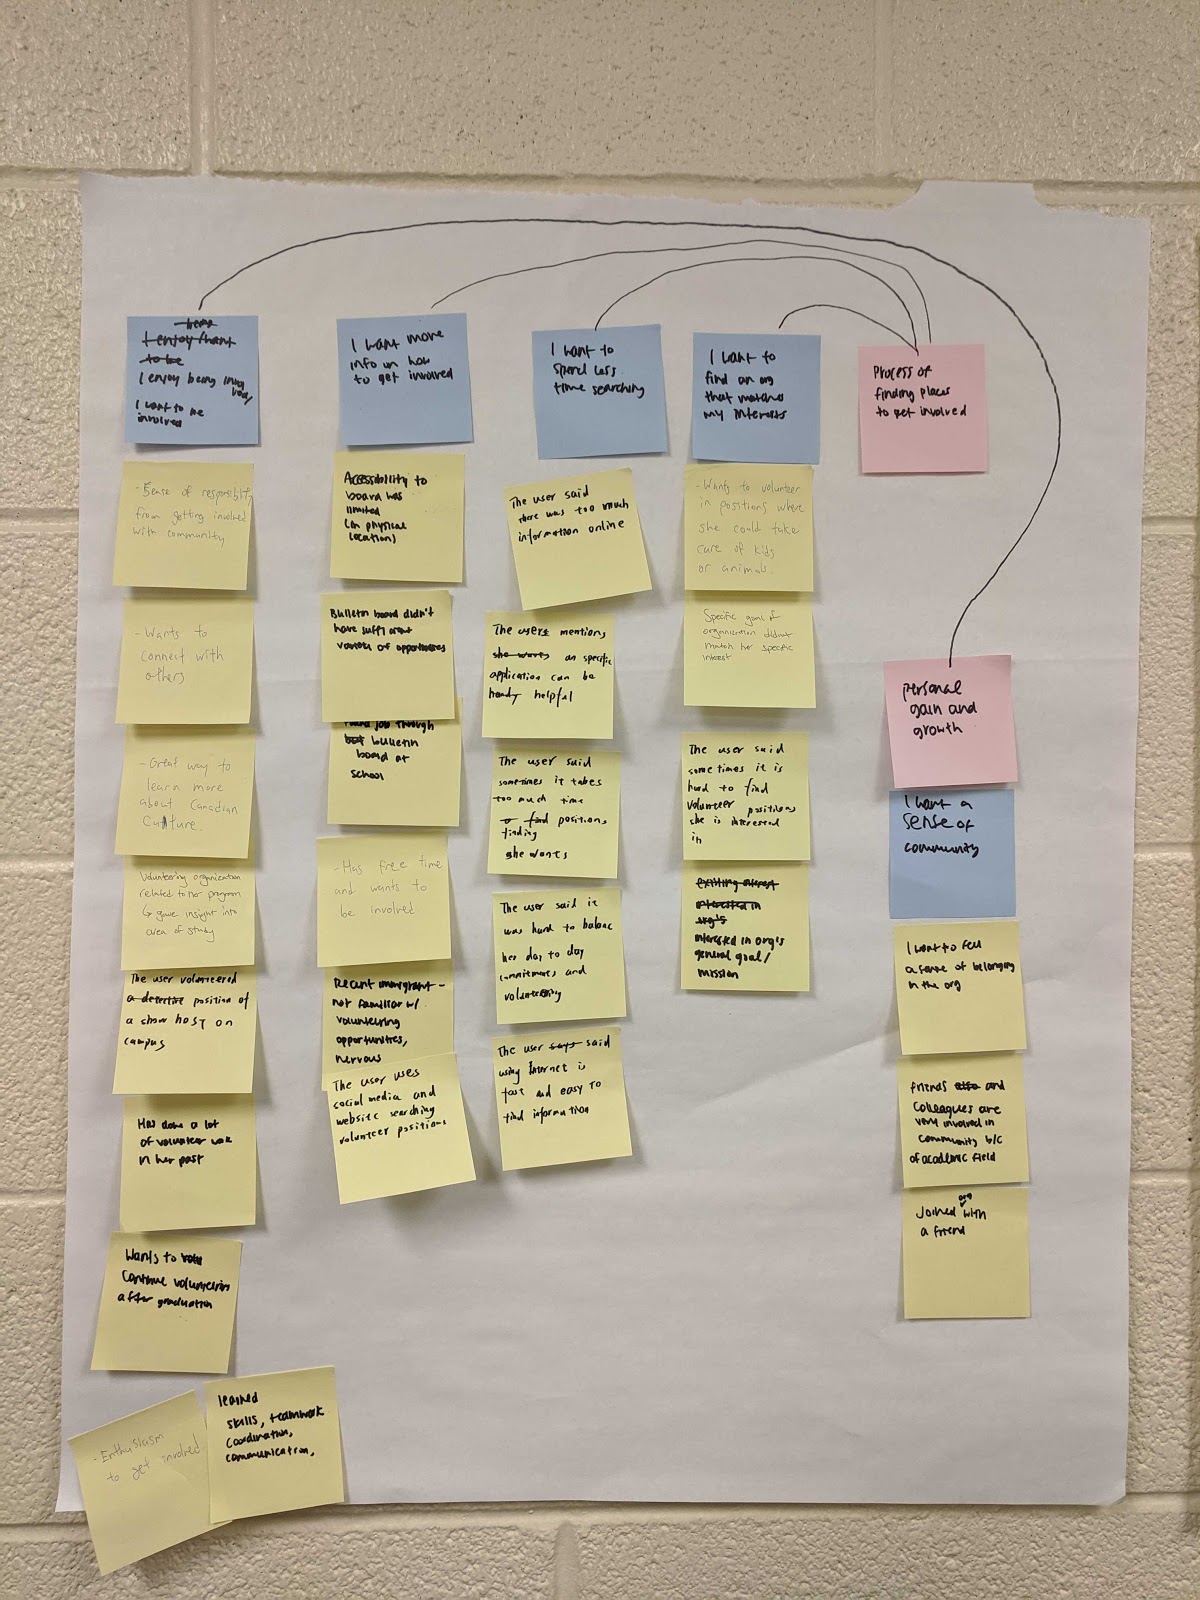 I enjoy being invol
ved/
I want to be
involved
- Sense of responsibility
from getting involved
with community
- Wants to
connect with
others
- Great way to
learn more
about Canadian
Culture.
Volunteering organization
related to her program
↳ gave insight into
area of study
The user volunteered
a detective position of
a show host on
campus
Has done a lot
of volunteer work
in her past
Wants to
continue volunteering
after graduation
- Enthusiasm
to get involved
learned
skills, teamwork
coordination,
communication,
I want more
info on how
to get involved
Accessibility to
board was
limited
(on physical
locations)
Bulletin board didn't
have sufficient
variety of opportunities
found job through
bulletin
board at
school
- Has free time
and wants to
be involved
Recent immigrant -
not familiar w/
volunteering
opportunities,
nervous
The user uses
social media and
website searching
volunteer positions
I want to
spend less
time searching
The user said
there was too much
information online
The users mentions
she wants an specific
application can be
handy helpful
The user said
sometimes it takes
too much time
o find positions
finding
she wants
The user said it
was hard to balance
her day to day
commitments and
volunteering
The user says said
using Internet is
fast and easy to
find information
I want to
find an org
that matches
my interests
- Wants to volunteer
in positions where
she could take
care of kids
or animals.
Specific goal of
organization didn't
match her specific
interest
The user said
sometimes it is
hard to find
volunteer positions
she is interested
in
existing interest
interested in
org's
interested in org's
general goal/
mission
Process of
finding places
to get involved
personal
gain and
growth
I want a
sense of
community
I want to feel
a sense of belonging
in the org
friends also and
colleagues are
very involved in
community b/c
of academic field
Joined org with
a friend